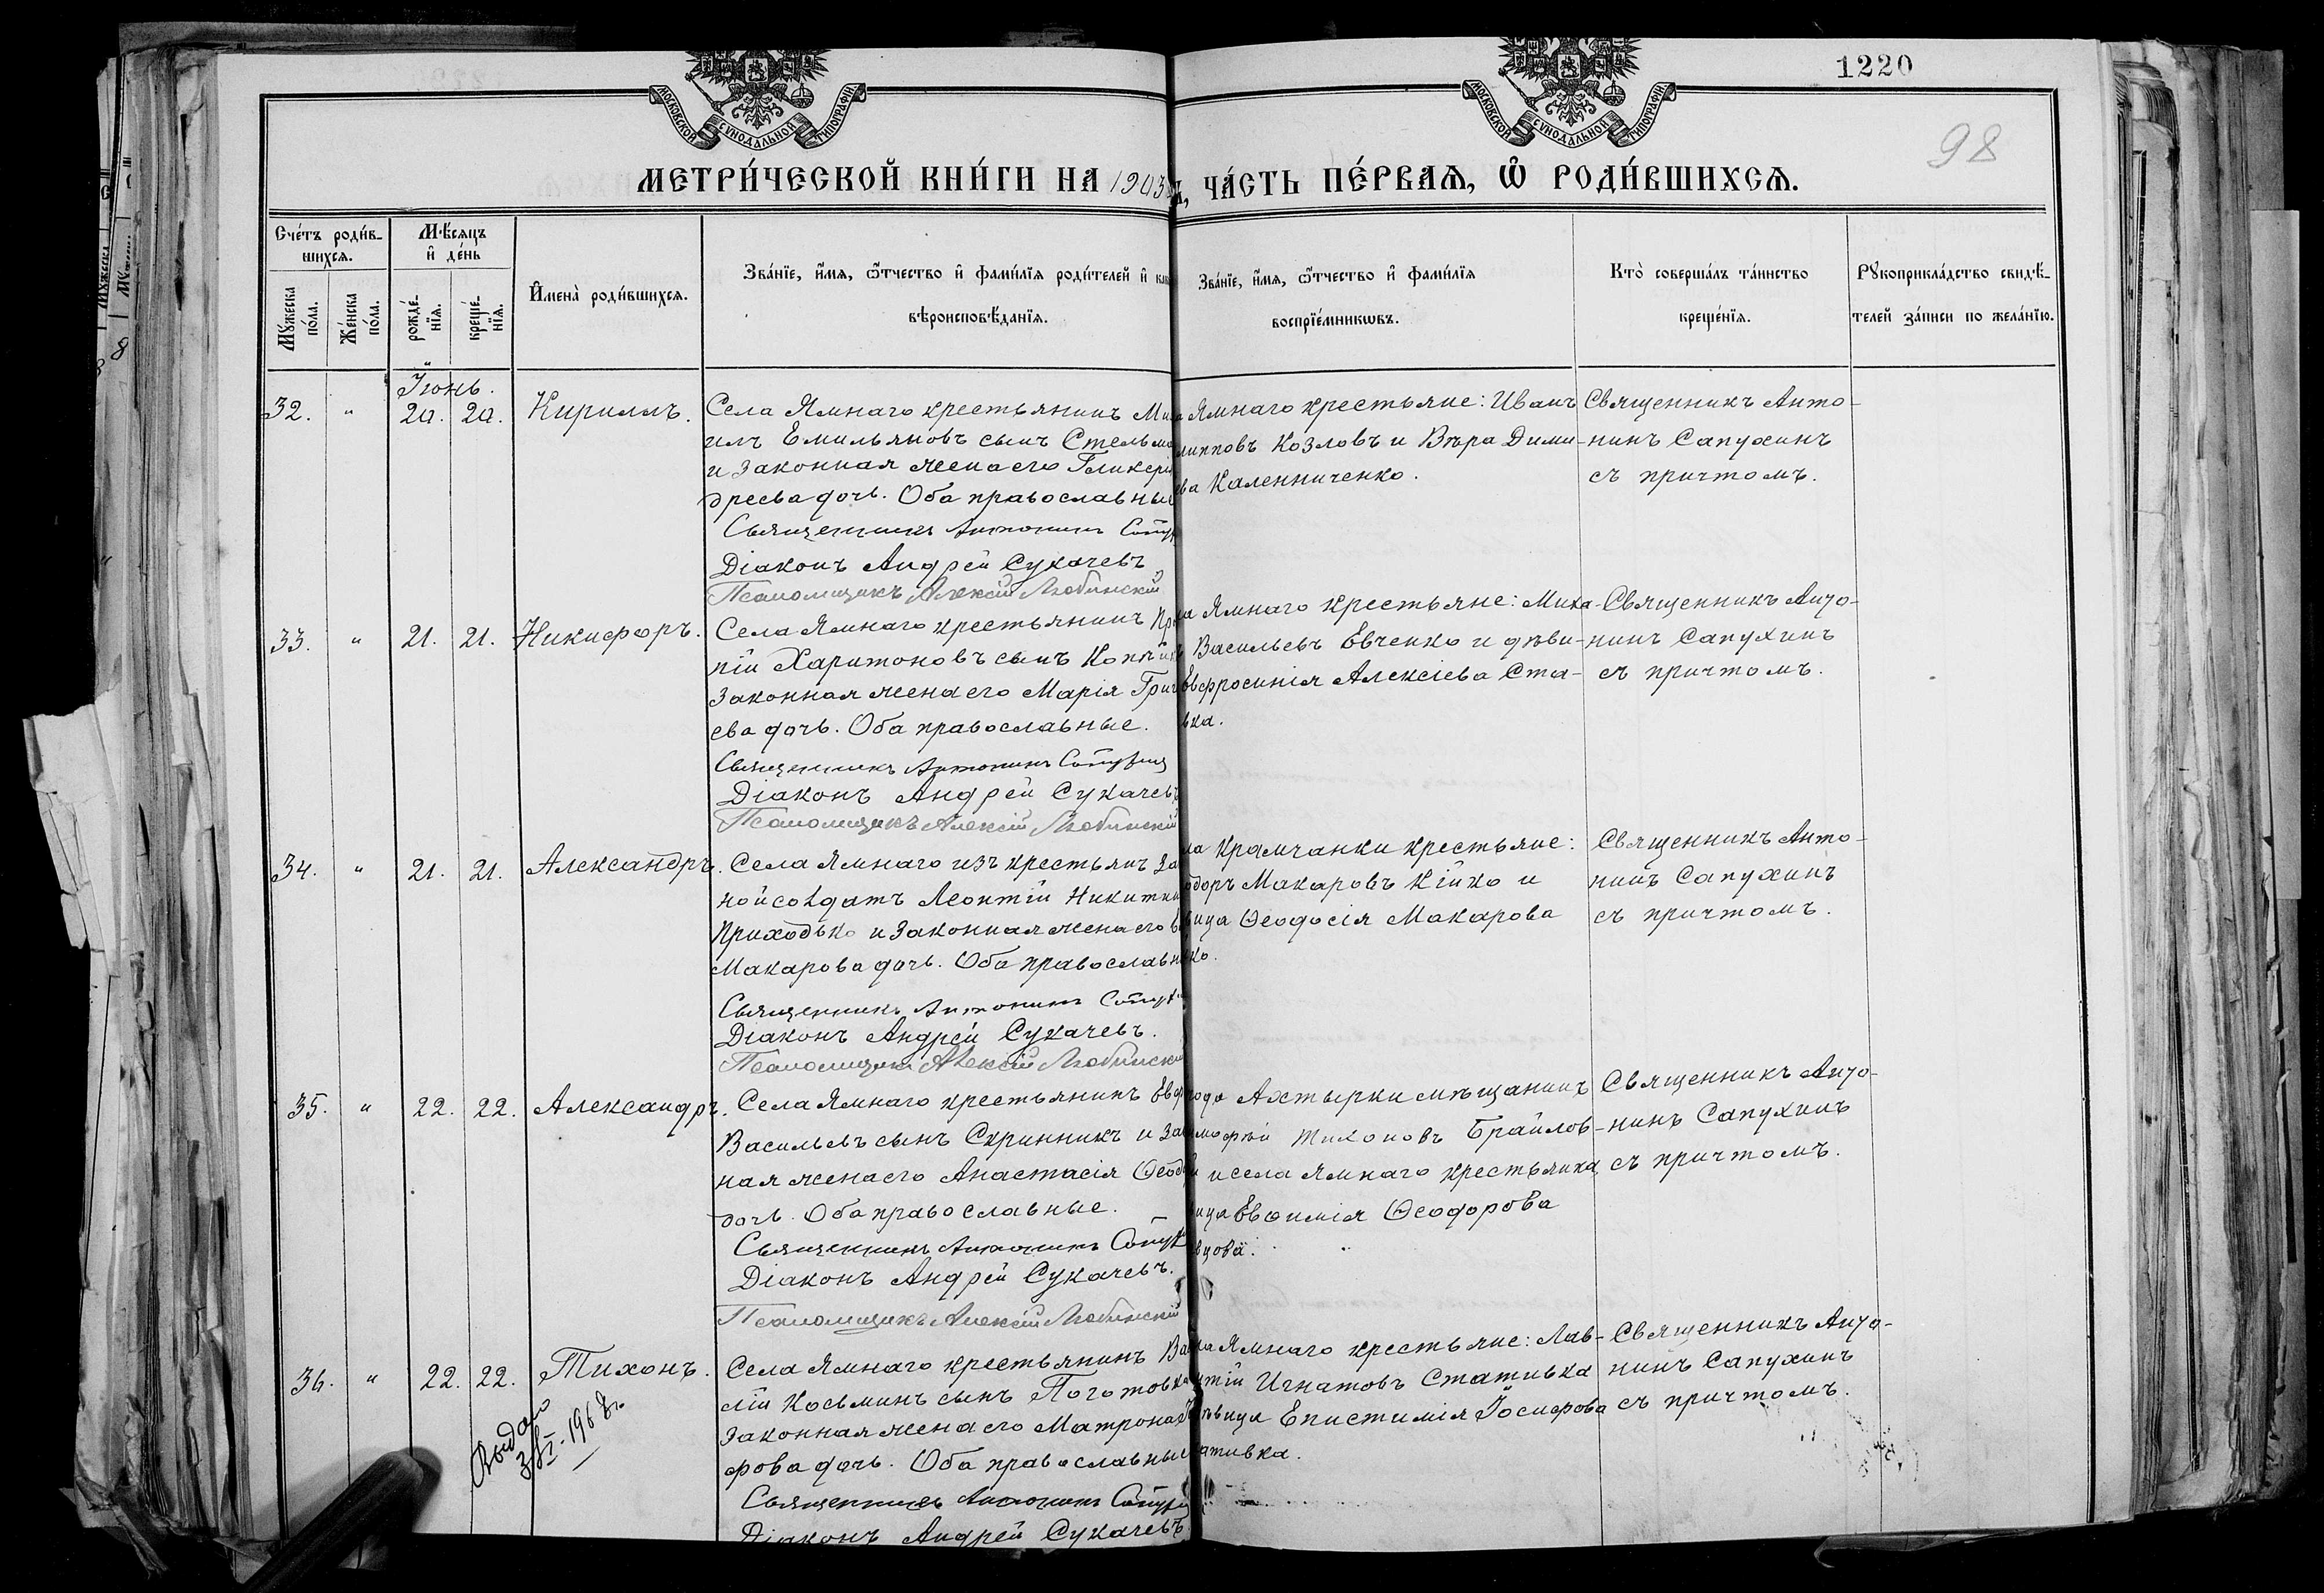 1220
98
МОСКОВСКОЙ СУНОДАЛЬНОЙ ТИПОГРАФІИ
МОСКОВСКОЙ СУНОДАЛЬНОЙ ТИПОГРАФІИ
МЕТРИ́ЧЕСКОЙ КНИ́ГИ НА 1903
ЧА́СТЬ ПЕ́РВАѦ, Ѡ РОДИ́ВШИХСѦ.
Сче́тъ роди́в-
шихсѧ.
Мꙋ́жеска по́ла.
Же́нска по́ла.
Мѣ́сѧцъ
и҆ де́нь
рожде́-
нїѧ.
креще́-
нїѧ.
И҆мена̀ роди́вшихсѧ.
Зва́нїе, и҆́мѧ, ѻ҆́тчество и҆ фами́лїѧ роди́телей и҆
вѣроисповѣ́данїѧ.
Зва́нїе, и҆́мѧ, ѻ҆́тчество и҆ фами́лїѧ
воспрїе́мникѡвъ.
Кто̀ соверша́лъ та́инство
креще́нїѧ.
Рꙋкоприкла́дство свидѣ́-
телей за́писи по жела́нїю.
Іюнь.
32. " 20. 20. Кириллъ.
Села Ямнаго крестьянинъ Миха
илъ Емильяновъ сынъ Стельма
и законная жена его Гликері
дреева дочь. Оба православные
Священникъ Антонинъ Сапух
Діаконъ Андрей Сукачевъ
Псаломщикъ Алексій Любинскій
Ямнаго крестьяне: Иванъ
липповъ Козловъ и Вѣра Дими-
ева Каленниченко.
Священникъ Анто-
нинъ Сапухинъ
съ причтомъ.
33. " 21. 21. Никифоръ.
Села Ямнаго крестьянинъ Про
пій Харитоновъ сынъ Копѣйк
законная жена его Марія Григ
ева дочь. Оба православные.
Священникъ Антонинъ Сапухин
Діаконъ Андрей Сукачевъ
Псаломщикъ Алексій Любинскій
ла Ямнаго крестьяне: Миха-
Васильевъ Евченко и дѣви-
Евфросинія Алексіева Ста-
вка.
Священникъ Анто-
нинъ Сапухинъ
съ причтомъ.
34. " 21. 21. Александръ.
Села Ямнаго изъ крестьянъ за
ной солдатъ Леонтій Никитин
Приходько и законная жена его
Макарова дочь. Оба православн
Священникъ Антонинъ Сапух
Діаконъ Андрей Сукачевъ.
Псаломщикъ Алексій Любинскій
ла Крамчанки крестьяне:
одоръ Макаровъ Кійко и
вица Ѳеодосія Макарова
ко.
Священникъ Анто-
нинъ Сапухинъ
съ причтомъ.
35. " 22. 22. Александръ.
Села Ямнаго крестьянинъ Евд
Васильевъ сынъ Скринникъ и за
ная жена его Анастасія Ѳеод
дочь. Оба православные.
Священникъ Антонинъ Сапух
Діаконъ Андрей Сукачевъ.
Псаломщикъ Алексій Любинскій
рода Ахтырки мѣщанинъ
моѳей Тихоновъ Брайлов-
и села Ямнаго крестьянка
вица Евѳимія Ѳеодорова
вцова.
Священникъ Анто-
нинъ Сапухинъ
съ причтомъ.
36. " 22. 22. Тихонъ.
Выдано
3/VI. 1908 г.
Села Ямнаго крестьянинъ Ва
лій Косьминъ сынъ Поготовка
законная жена его Матрона
фова дочь. Оба православные
Священникъ Антонинъ Сапух
Діаконъ Андрей Сукачевъ
ла Ямнаго крестьяне: Лав-
нтій Игнатовъ Стативка
ѣвица Епистимія Іосифова
ативка.
Священникъ Анто-
нинъ Сапухинъ
съ причтомъ.